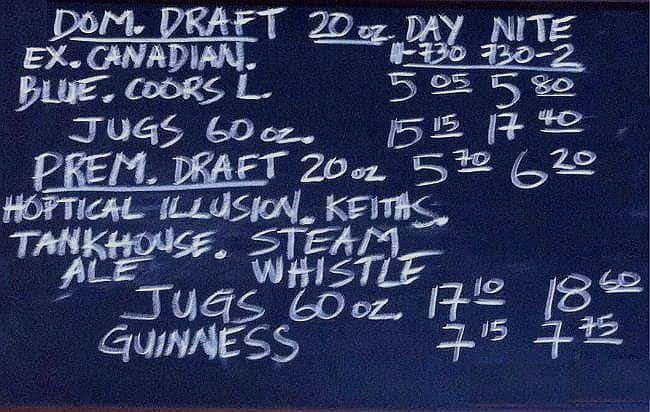 DOM. DRAFT 20 oz DAY NITE
EX. CANADIAN. 11-730 730-2
BLUE. COORS L. 5 05 5 80
JUGS 60 oz. 15 15 17 40
PREM. DRAFT 20 oz 5 70 6 20
HOPTICAL ILLUSION. KEITHS.
TANKHOUSE. STEAM
ALE WHISTLE
JUGS 60 oz. 17 10 18 60
GUINNESS 7 15 7 75